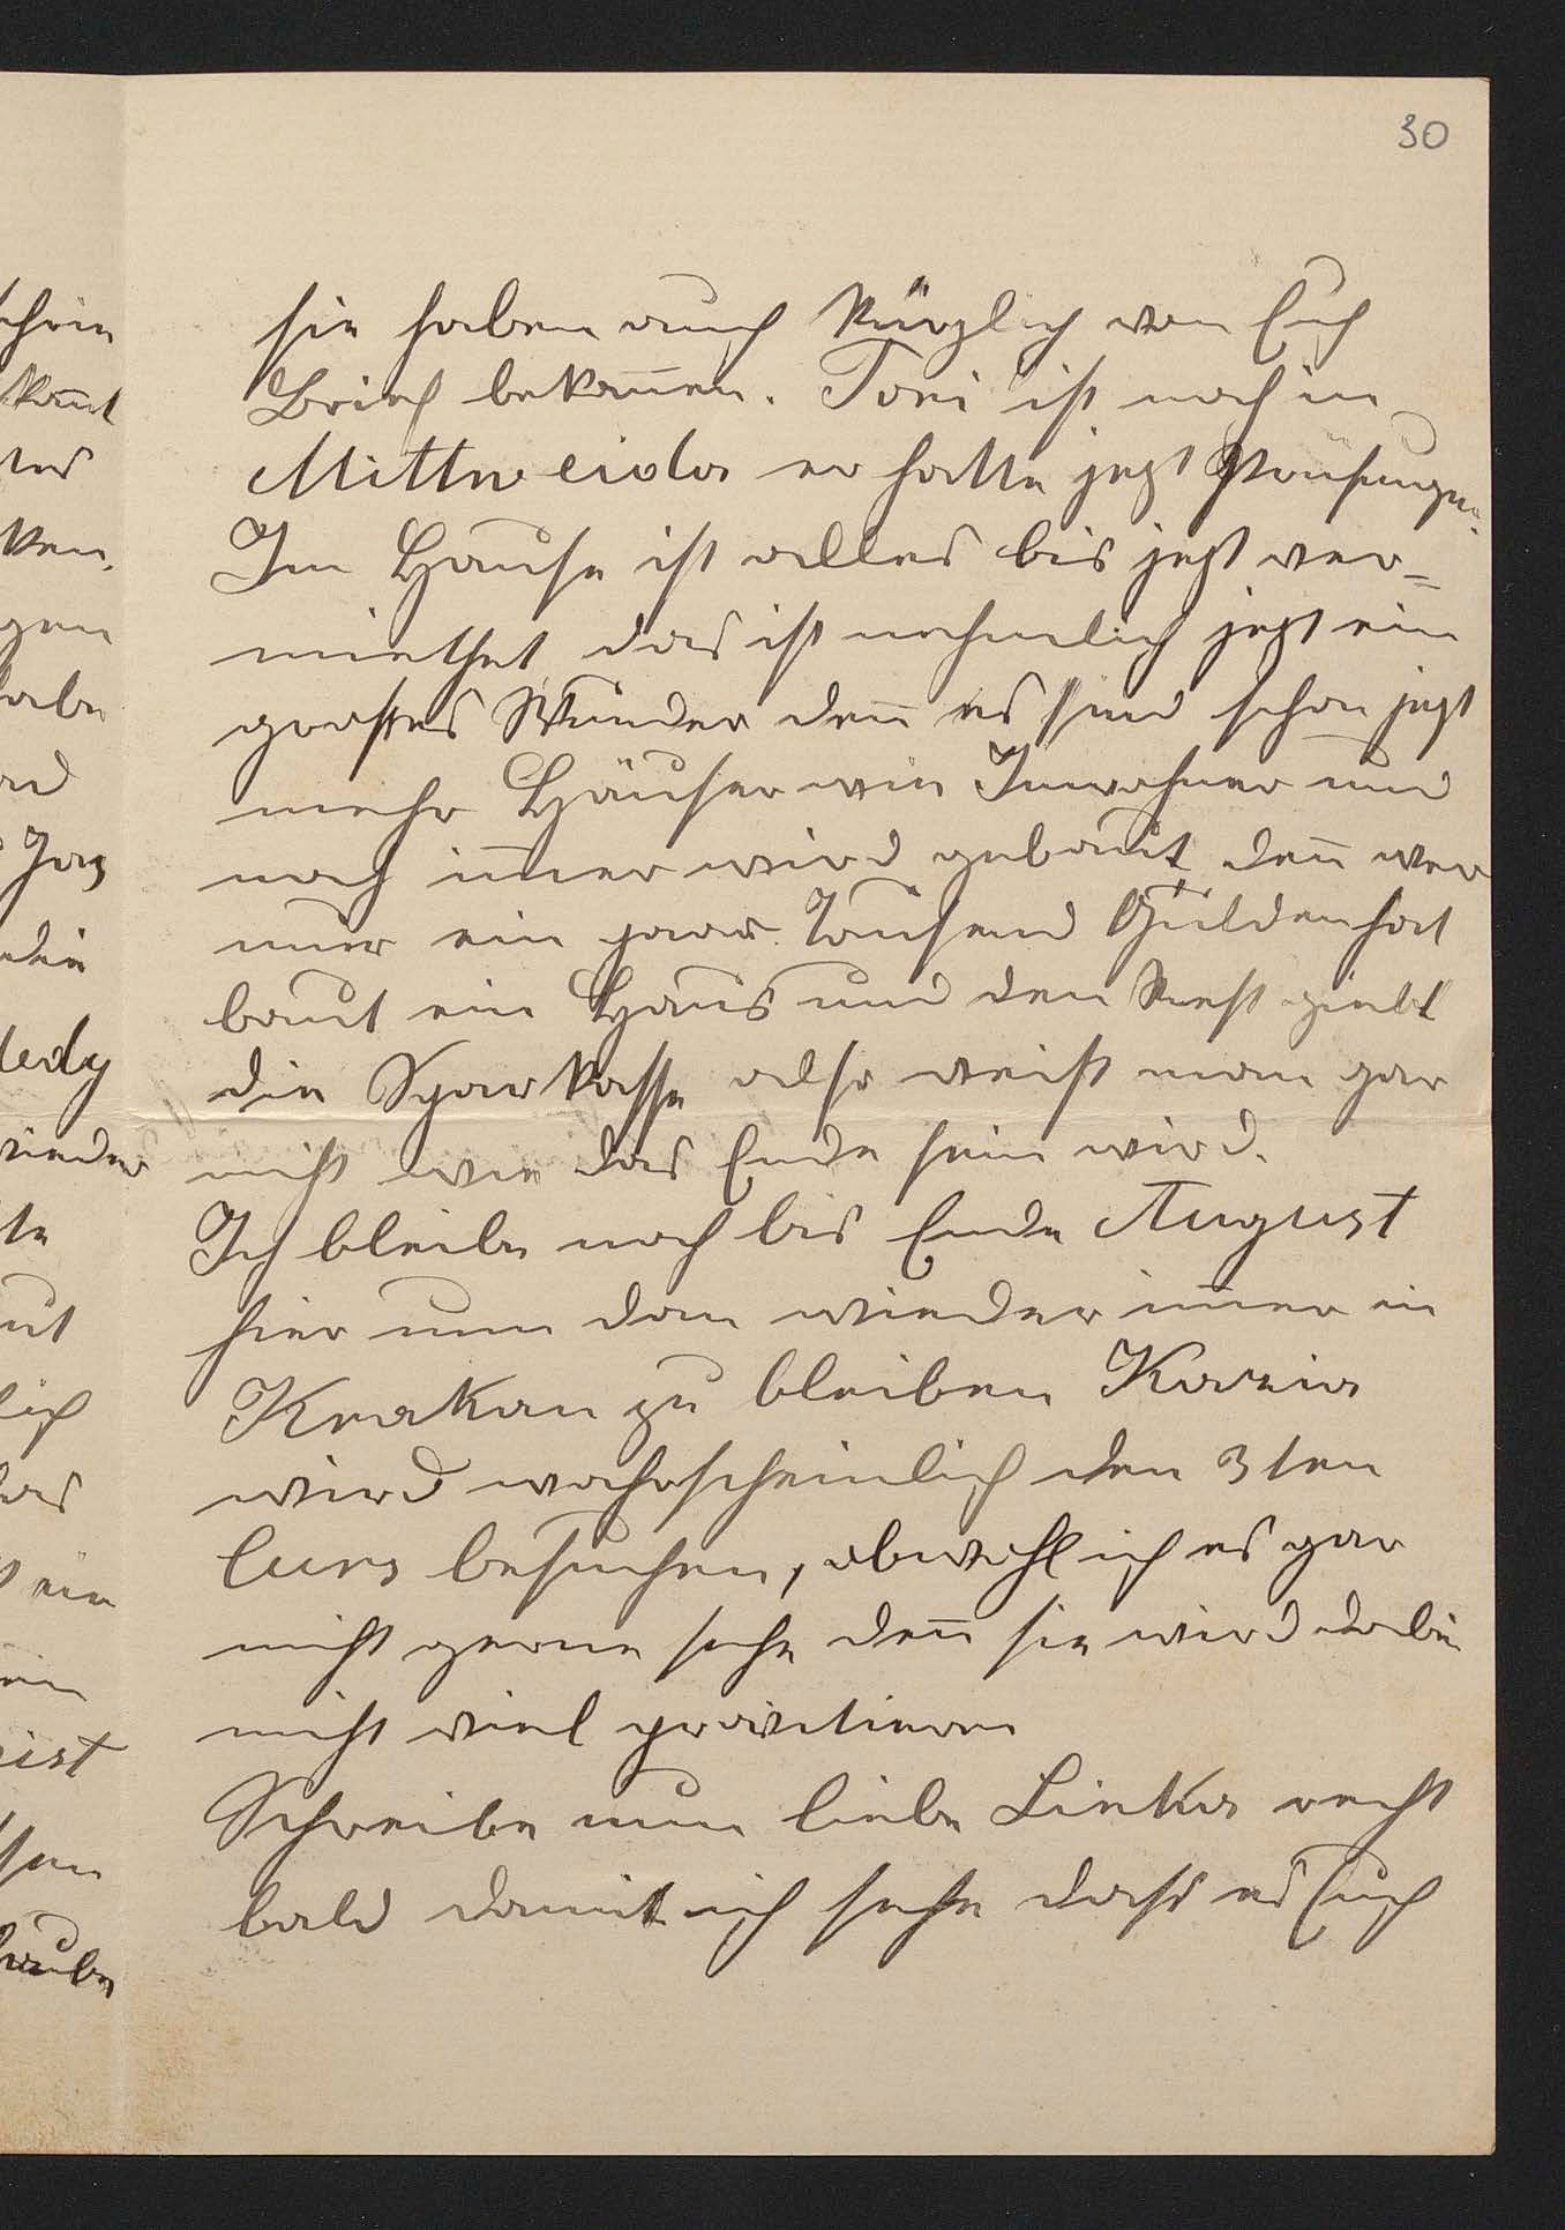 30
sie haben auch kürzlich von Euch
Brief bekom̄en. Toni ist noch in
Mittweida er hatte jezt Prüfungen.
Im Hause ist alles bis jezt ver=
miethet das ist nehmlich jezt ein
grosses Wunder den̄ es sind schon jezt
mehr Häuser wie Inwohner und
noch im̄er wird gebaut den̄ wer
nur ein paar Tausend Gulden hat
baut ein Haus und den Rest giebt
die Sparkasse also weist man gar
nicht wie das Ende sein wird.
Ich bleibe noch bis Ende August
hier um dan wieder im̄er in
Krakau zu bleiben
wird wahrscheinlich den 3ten
Curs besuchen, obwohl ich es gar
nicht gerne sehe den̄ sie wird dabei
nicht viel provitieren
Schreibe nun liebe Linka recht
bald damit ich sehe dass es Euch